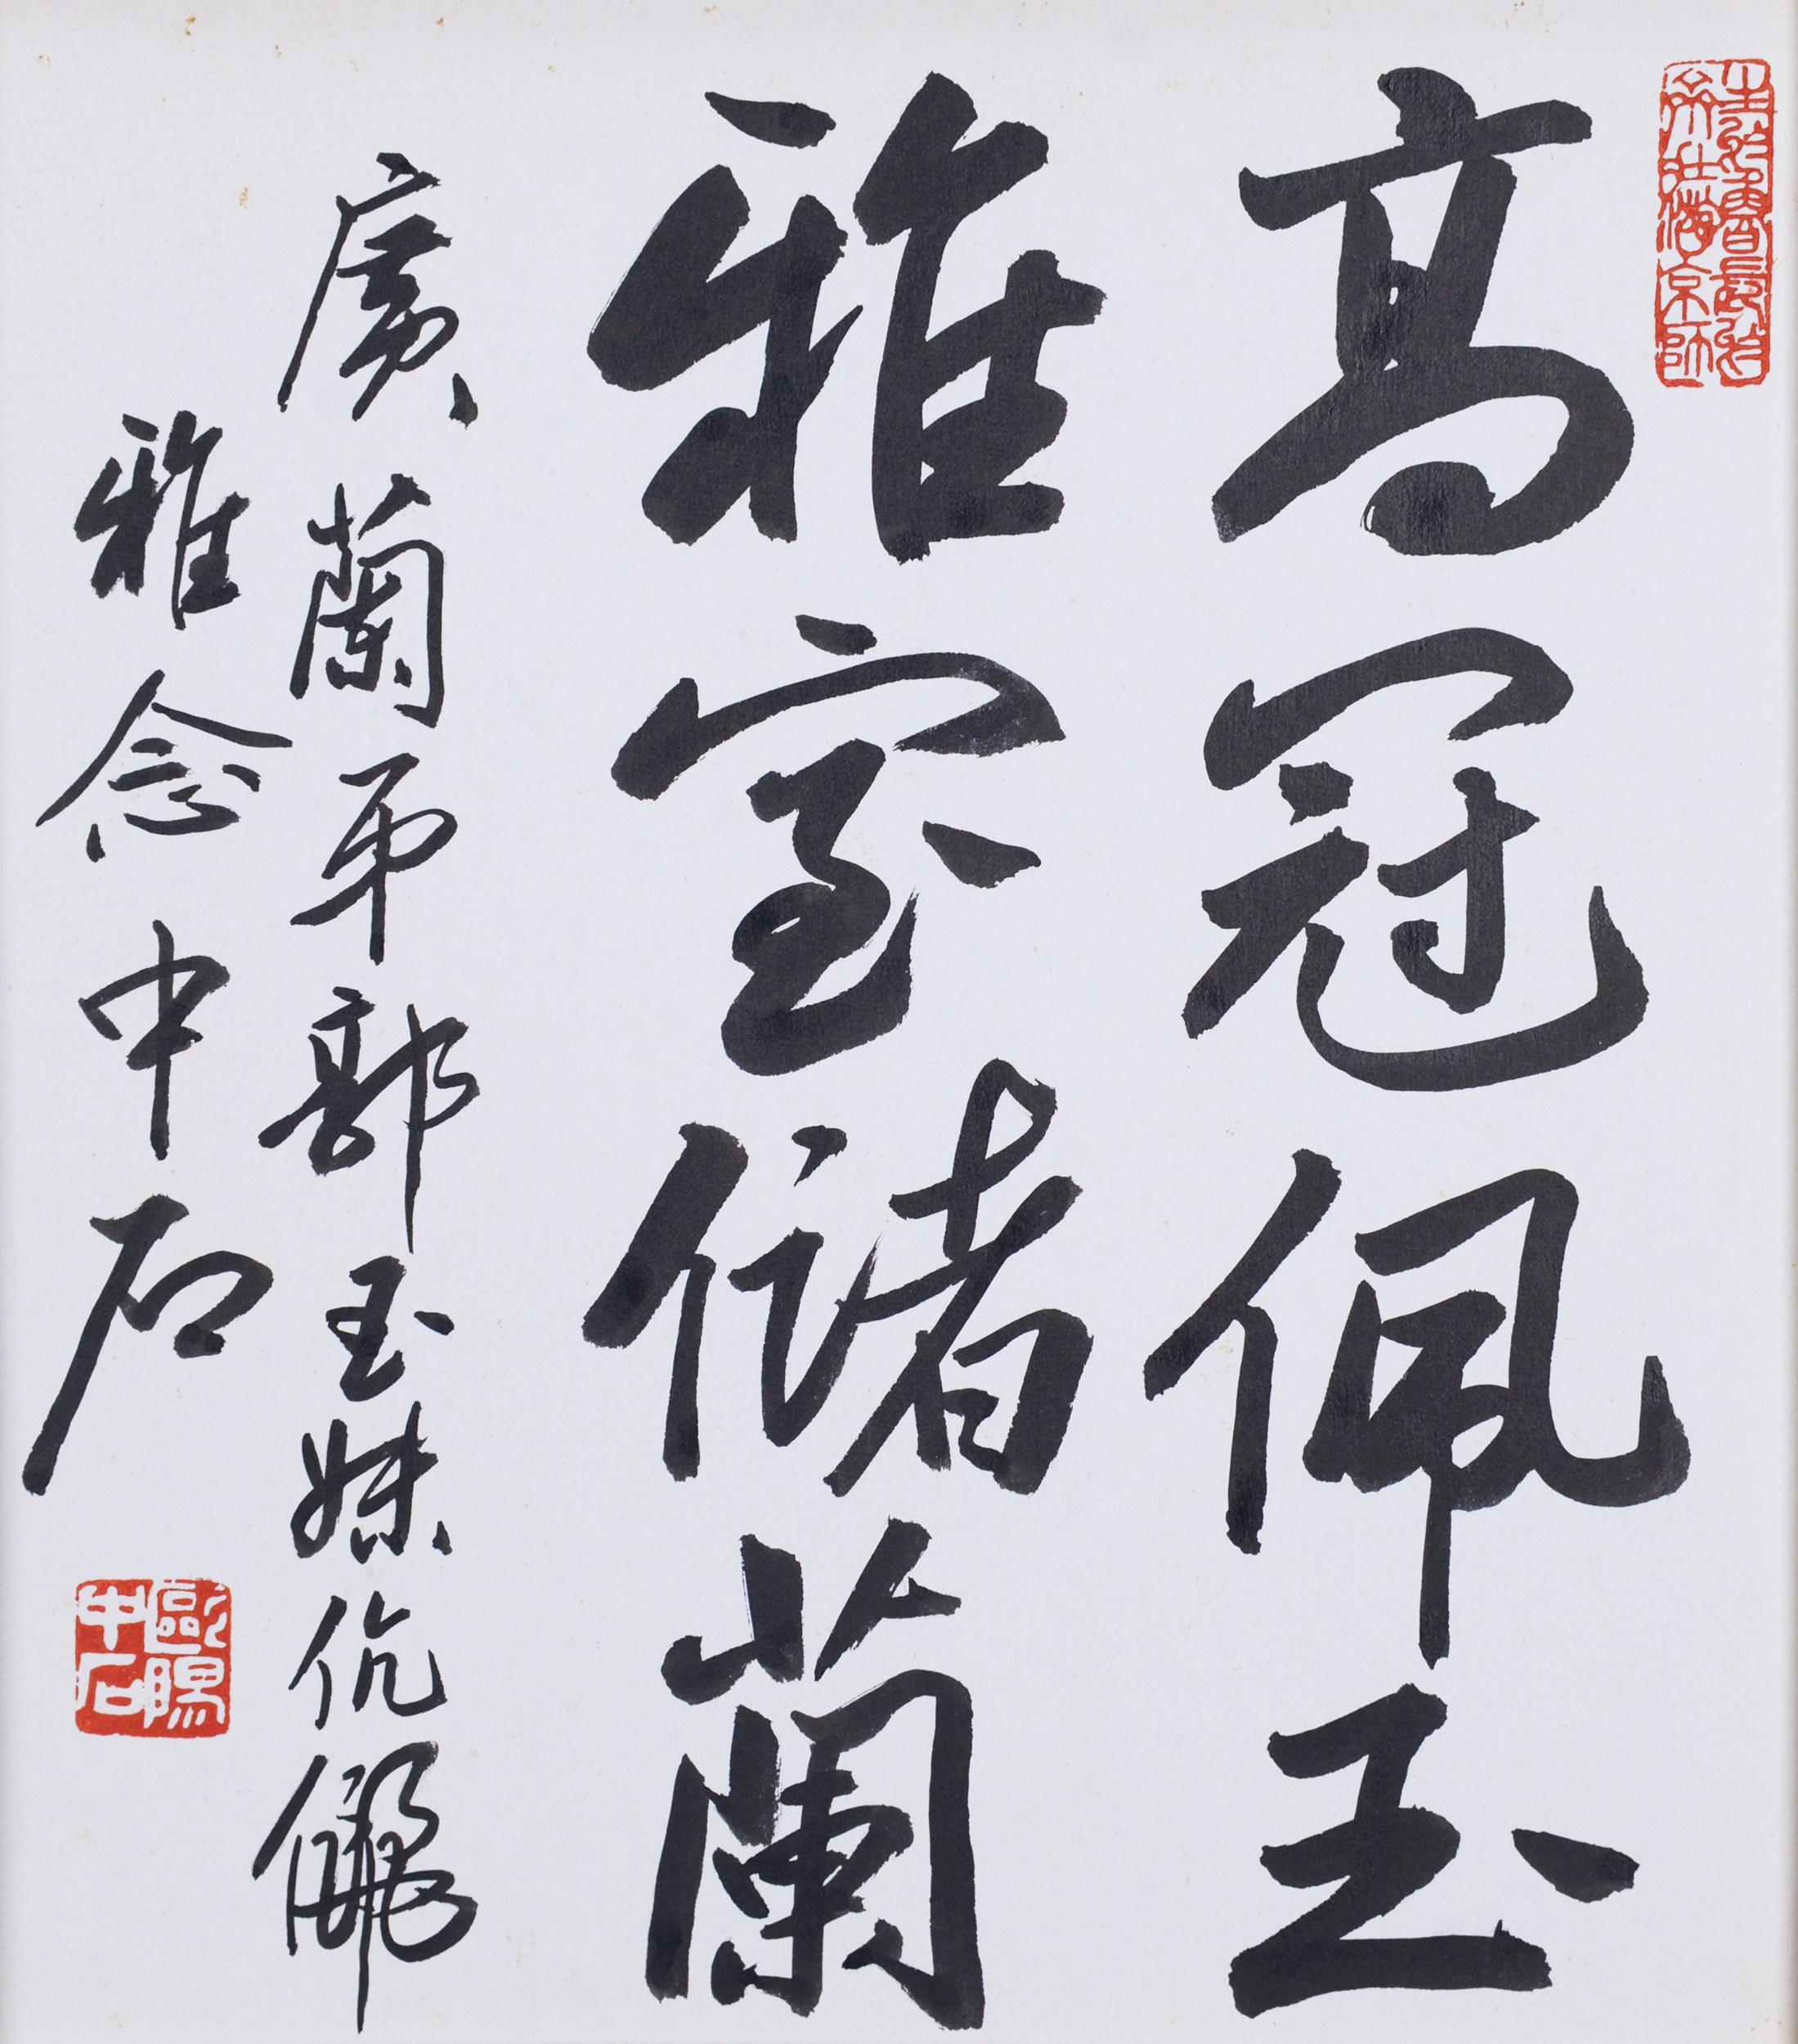 高冠佩玉
雅室儲蘭
廣蘭弟郭玉妹伉儷
雅念中石
歐陽中石